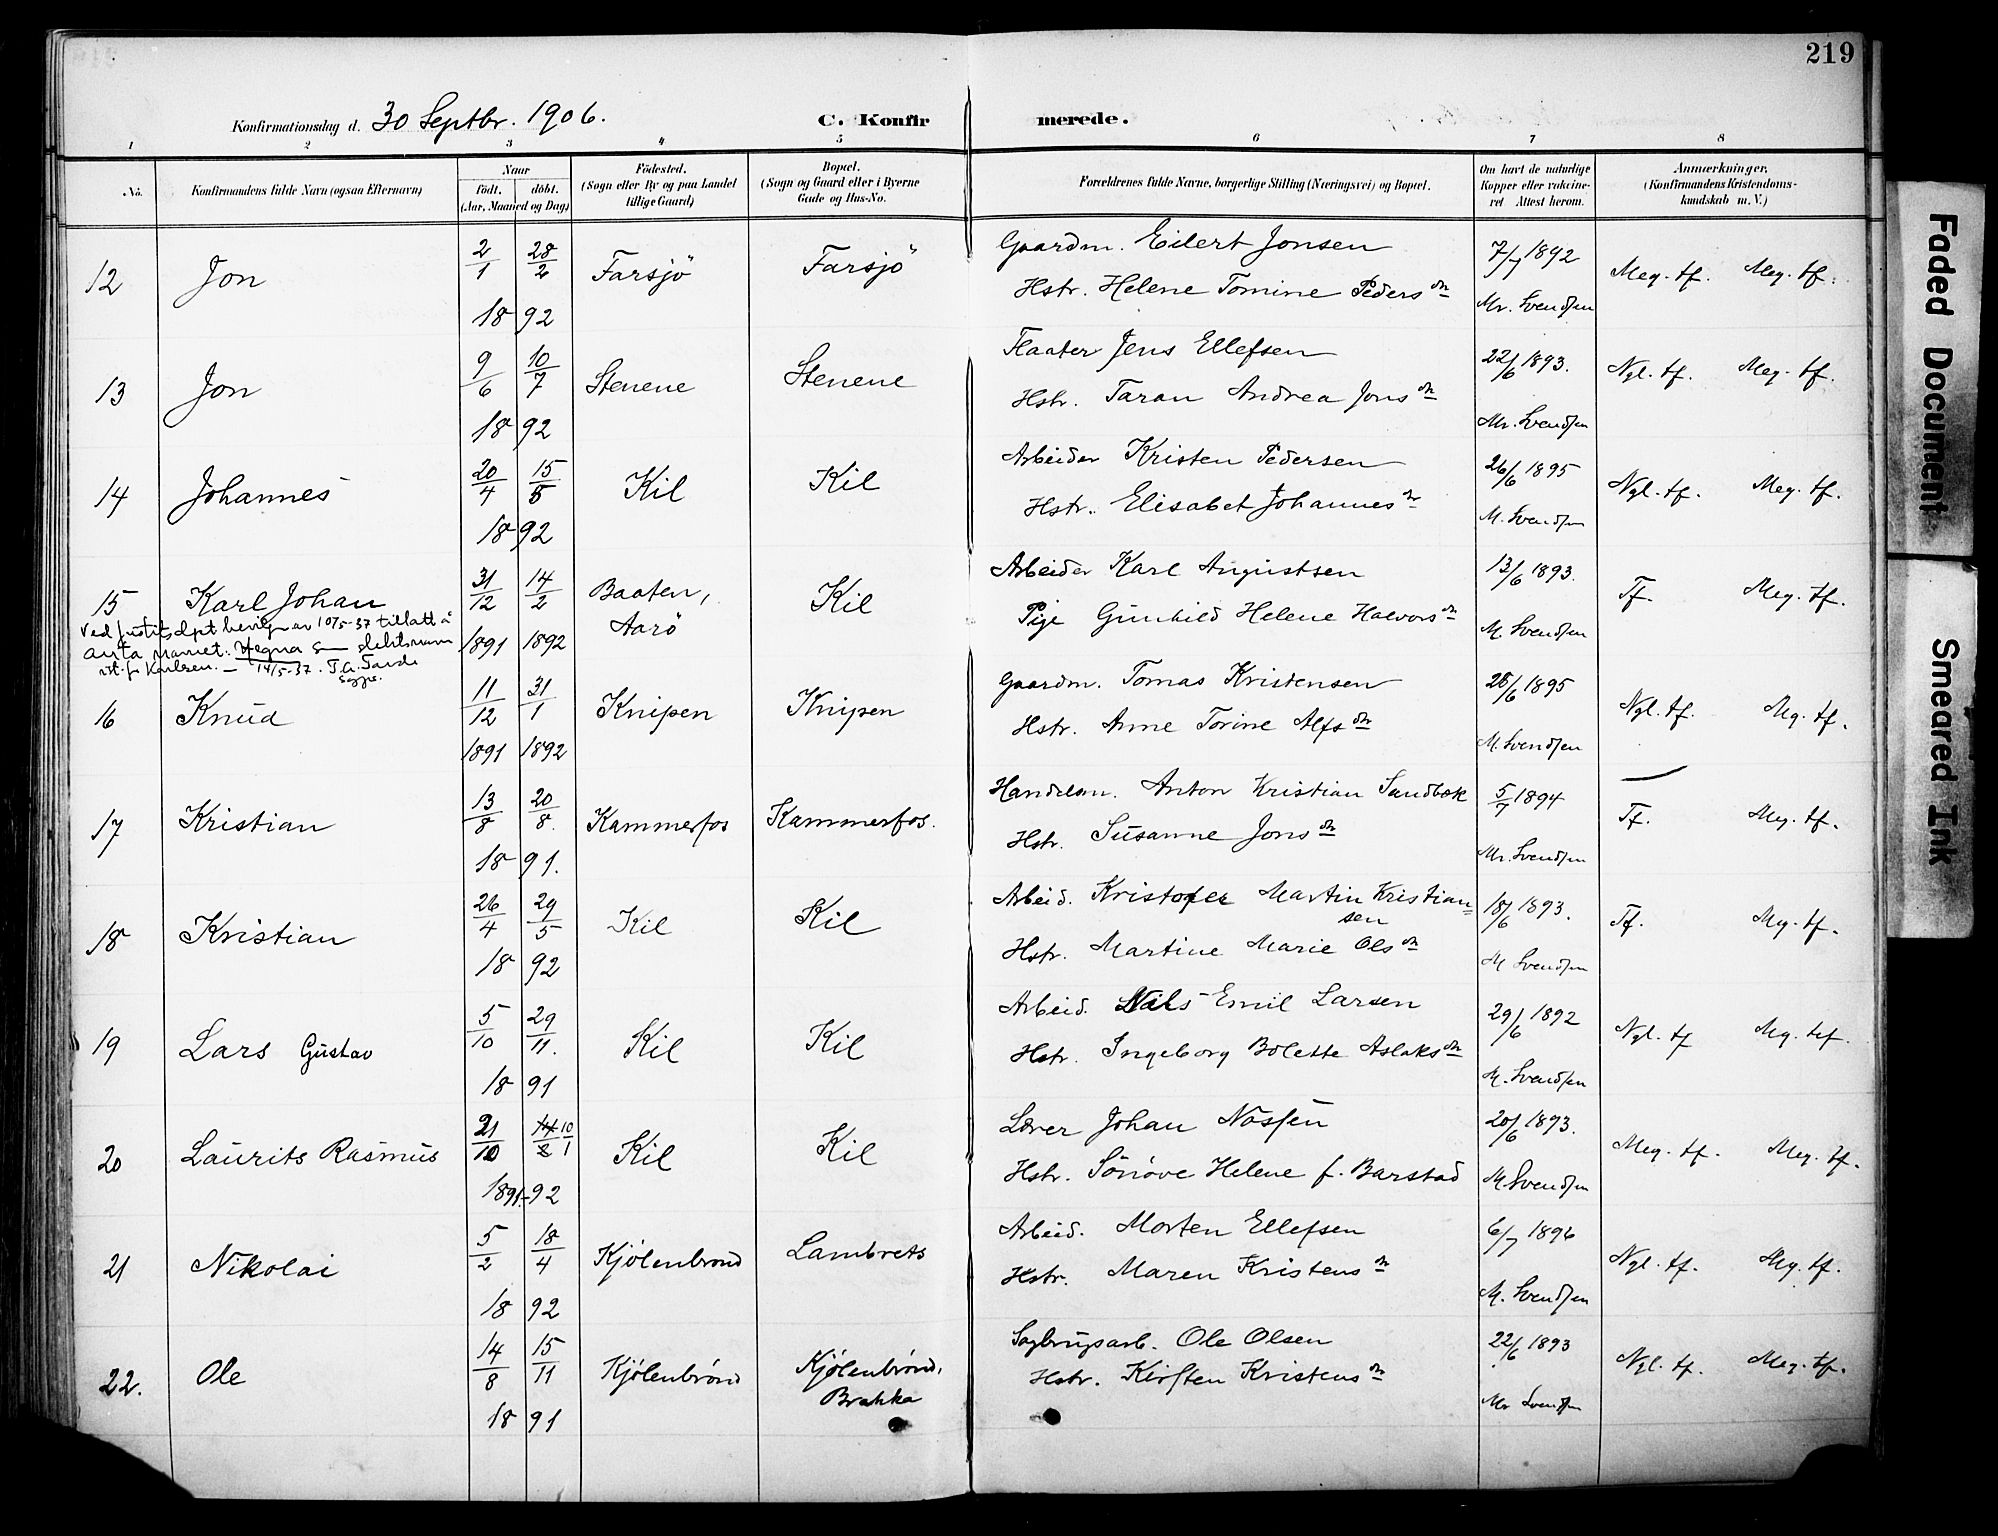 219
Konfirmationsdag d. 30 Septbr. 1906.
C. Konfirmerede.
1 2 3 4 5 6 7 8
No.
Konfirmandens fulde Navn (ogsaa Efternavn)
Naar
födt. döbt.
(Aar, Maaned og Dag)
Födested.
(Sogn eller By og paa Landet
tillige Gaard)
Bopæl.
(Sogn og Gaard eller i Byerne
Gade og Hus-No.
Forældrenes fulde Navne, borgerlige Stilling (Næringsvei) og Bopæl.
Om havt de naturlige
Kopper eller vaccine-
ret Attest herom.
Anmærkninger,
(Konfirmandens Kristendoms-
kundskab m. V.)
12 Jon 2/1 28/2 Farsjö Farsjö Gaardm. Eilert Jonsen 7/7 1892 Meg. tf. Meg. tf.
18 92 Hstr. Helene Tomine Pedersdtr Mr. Svendsen
13 Jon 9/6 10/7 Stenene Stenene Flaater Jens Ellefsen 22/6 1893. Ngl. tf. Meg. tf.
18 92 Hstr. Taran Andrea Jonsdtr Mr. Svendsen
14 Johannes 20/4 15/5 Kil Kil Arbeider Kristen Pedersen 26/6 1895 Ngl. tf. Meg. tf.
18 92 Hstr. Elisabet Johannesdtr M. Svendsen
15 Karl Johan 31/12 14/2 Baaten, Kil Arbeider Karl Augustsen 13/6 1893. Tf. Meg. tf.
1891 1892 Aarö Pige Gunhild Helene Halvorsdtr M. Svendsen
Ved Justitsdpt bevilgn av 10/5-37 tillatt å
anta navnet: Hegna som slektsnavn
ist. fr Karlsen. — 14/5-37.
16 Knud 11/12 31/1 Knipen Knipen Gaardm. Tomas Kristensen 28/6 1895 Ngl. tf. Mg. tf.
1891 1892 Hstr. Anne Torine Alfsdtr M. Svendsen
17 Kristian 13/8 20/8. Kammerfos Kammerfos. Handelsm. Anton Kristian Sandbæk 5/7 1894 Tf. Meg. tf.
18 91. Hstr. Susanne Jonsdtr Mr. Svendsen
18 Kristian 26/4 29/5 Kil Kil Arbeid. Kristofer Martin Kristian= 18/6 1893. Tf. Mg. tf.
sen
18 92 Hstr. Martine Marie Olsdtr M Svendsen
19 Lars Gustav 5/10 29/11. Kil Kil Arbeid. Nils Emil Larsen 29/6 1892 Ngl. tf Mg. tf.
18 91 Hstr. Ingeborg Bolette Aslaksdtr M. Svendsen
20 Laurits Rasmus 21/10 14/2 10/1 Kil Kil Lærer Johan Næssen 20/6 1893. Meg. tf. Meg. tf.
1891-92 Hstr. Sönöve Helene f. Barstad M. Svendsen
21 Nikolai 5/2 18/4 Kjölenbrönd Lambrets Arbeid. Morten Ellefsen 6/7 1896 Ngl. tf. Mg. tf.
18 92 Hstr. Maren Kristensdtr M. Svendsen
22. Ole 14/8 15/11 Kjölenbrönd Kjölenbrönd, Sagbrugsarb. Ole Olsen 22/6 1893 Ngl. tf. Meg. tf.
Brakka
18 91 Hstr. Kirsten Kristensdtr Mr Svendsen
Faded Document
Smeared Ink